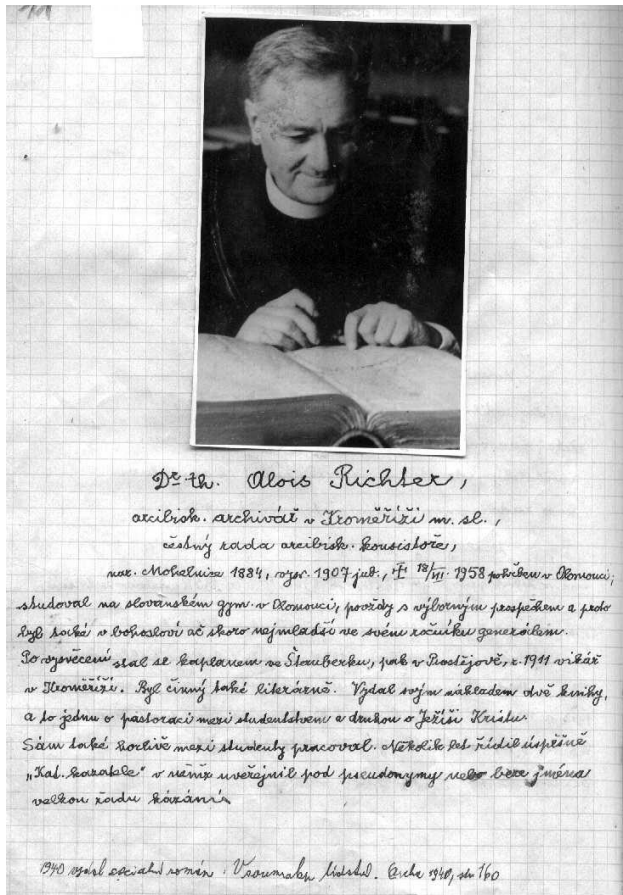 Dr. th. Alois Richter,
arcibisk. archivář v Kroměříži m. sl.,
čestný rada arcibisk. konsistoře,
nar. Mohelnice 1884, vysv. 1907 18/VII. 1958 pohřben v Olomouci;
studoval na slovanském gym. v Olomouci, povždy s výborným prospěchem a proto
byl také v bohosloví ač skoro nejmladší ve svém ročníku generálem.
Po vysvěcení stal se kaplanem ve Šternberku, pak v Prostějově, r. 1911 vikář
v Kroměříži. Byl činný také literárně. Vydal svým nákladem dvě knihy,
a to jednu o pastoraci mezi studentstvem a druhou o Ježíši Kristu.
Sám také horlivě mezi studenty pracoval. Několik let řídil úspěšně
„Kat. kazatele" v němž uveřejnil pod pseudonymy nebo beze jména
velkou řadu kázání.
1940 vydal sociální román: V soumraku lidstva. Archa 1940, str. 160